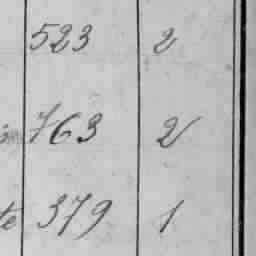 523 2
763 2
te 379 1